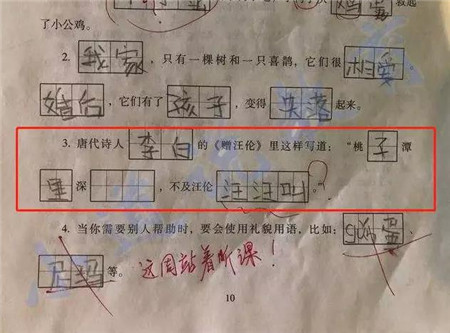 鸡蛋救起
了小公鸡。
2. 我家，只有一棵树和一只喜鹊，它们很相爱
婚后，它们有了孩子，变得失落起来。
3. 唐代诗人李白的《赠汪伦》里这样写道：“桃子潭
里深，不及汪伦汪汪叫。”
4. 当你需要别人帮助时，要会使用礼貌用语，比如：蛋
尼玛等。 这周站着听课！
10